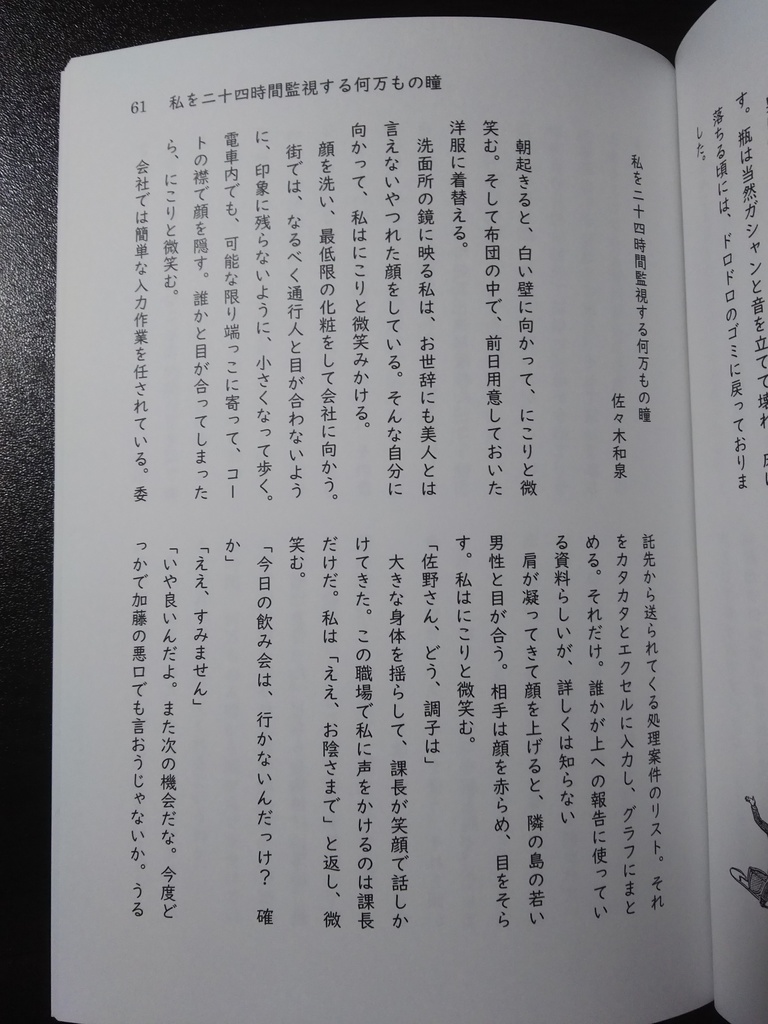 した。
落ちる頃には、ドロドロのゴミに戻っておりま
す。瓶は当然ガシャンと音を立てて壊れ、
61 私を二十四時間監視する何万もの瞳
私を二十四時間監視する何万もの瞳
佐々木和泉
朝起きると、白い壁に向かって、にこりと微
笑む。そして布団の中で、前日用意しておいた
洋服に着替える。
洗面所の鏡に映る私は、お世辞にも美人とは
言えないやつれた顔をしている。そんな自分に
向かって、私はにこりと微笑みかける。
顔を洗い、最低限の化粧をして会社に向かう。
街では、なるべく通行人と目が合わないよう
に、印象に残らないように、小さくなって歩く。
電車内でも、可能な限り端っこに寄って、コー
トの襟で顔を隠す。誰かと目が合ってしまった
ら、にこりと微笑む。
会社では簡単な入力作業を任されている。委
託先から送られてくる処理案件のリスト。それ
をカタカタとエクセルに入力し、グラフにまと
める。それだけ。誰かが上への報告に使ってい
る資料らしいが、詳しくは知らない
肩が凝ってきて顔を上げると、隣の島の若い
男性と目が合う。相手は顔を赤らめ、目をそら
す。私はにこりと微笑む。
「佐野さん、どう、調子は」
大きな身体を揺らして、課長が笑顔で話しか
けてきた。この職場で私に声をかけるのは課長
だけだ。私は「ええ、お陰さまで」と返し、微
笑む。
「今日の飲み会は、行かないんだっけ? 確
か」
「ええ、すみません」
「いや良いんだよ。また次の機会だな。今度ど
っかで加藤の悪口でも言おうじゃないか。うる